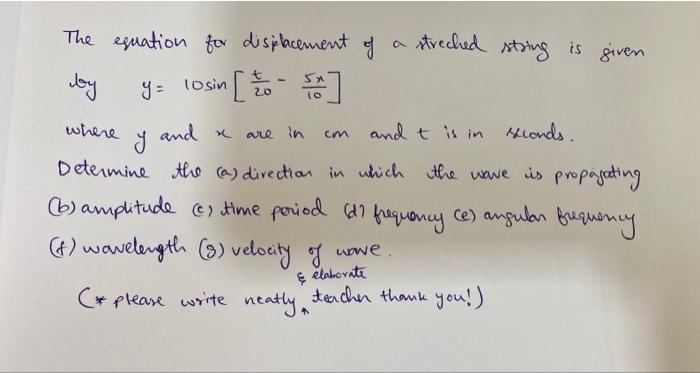 The equation for displacement of a streched string is given
by y = 10 sin [ t/20 - 5x/10 ]
where y and x are in cm and t is in seconds.
Determine the (a) direction in which the wave is propagating
(b) amplitude (c) time period (d) frequency (e) angular frequency
(f) wavelength (g) velocity of wave.
(* please write neatly & elaborate teacher thank you!)